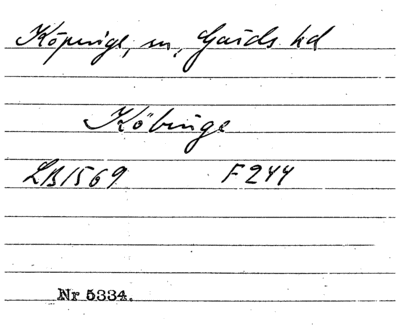 Köpinge, sn, Gärds hd
Köbinge
LB 1569 F 244
Nr 5334.